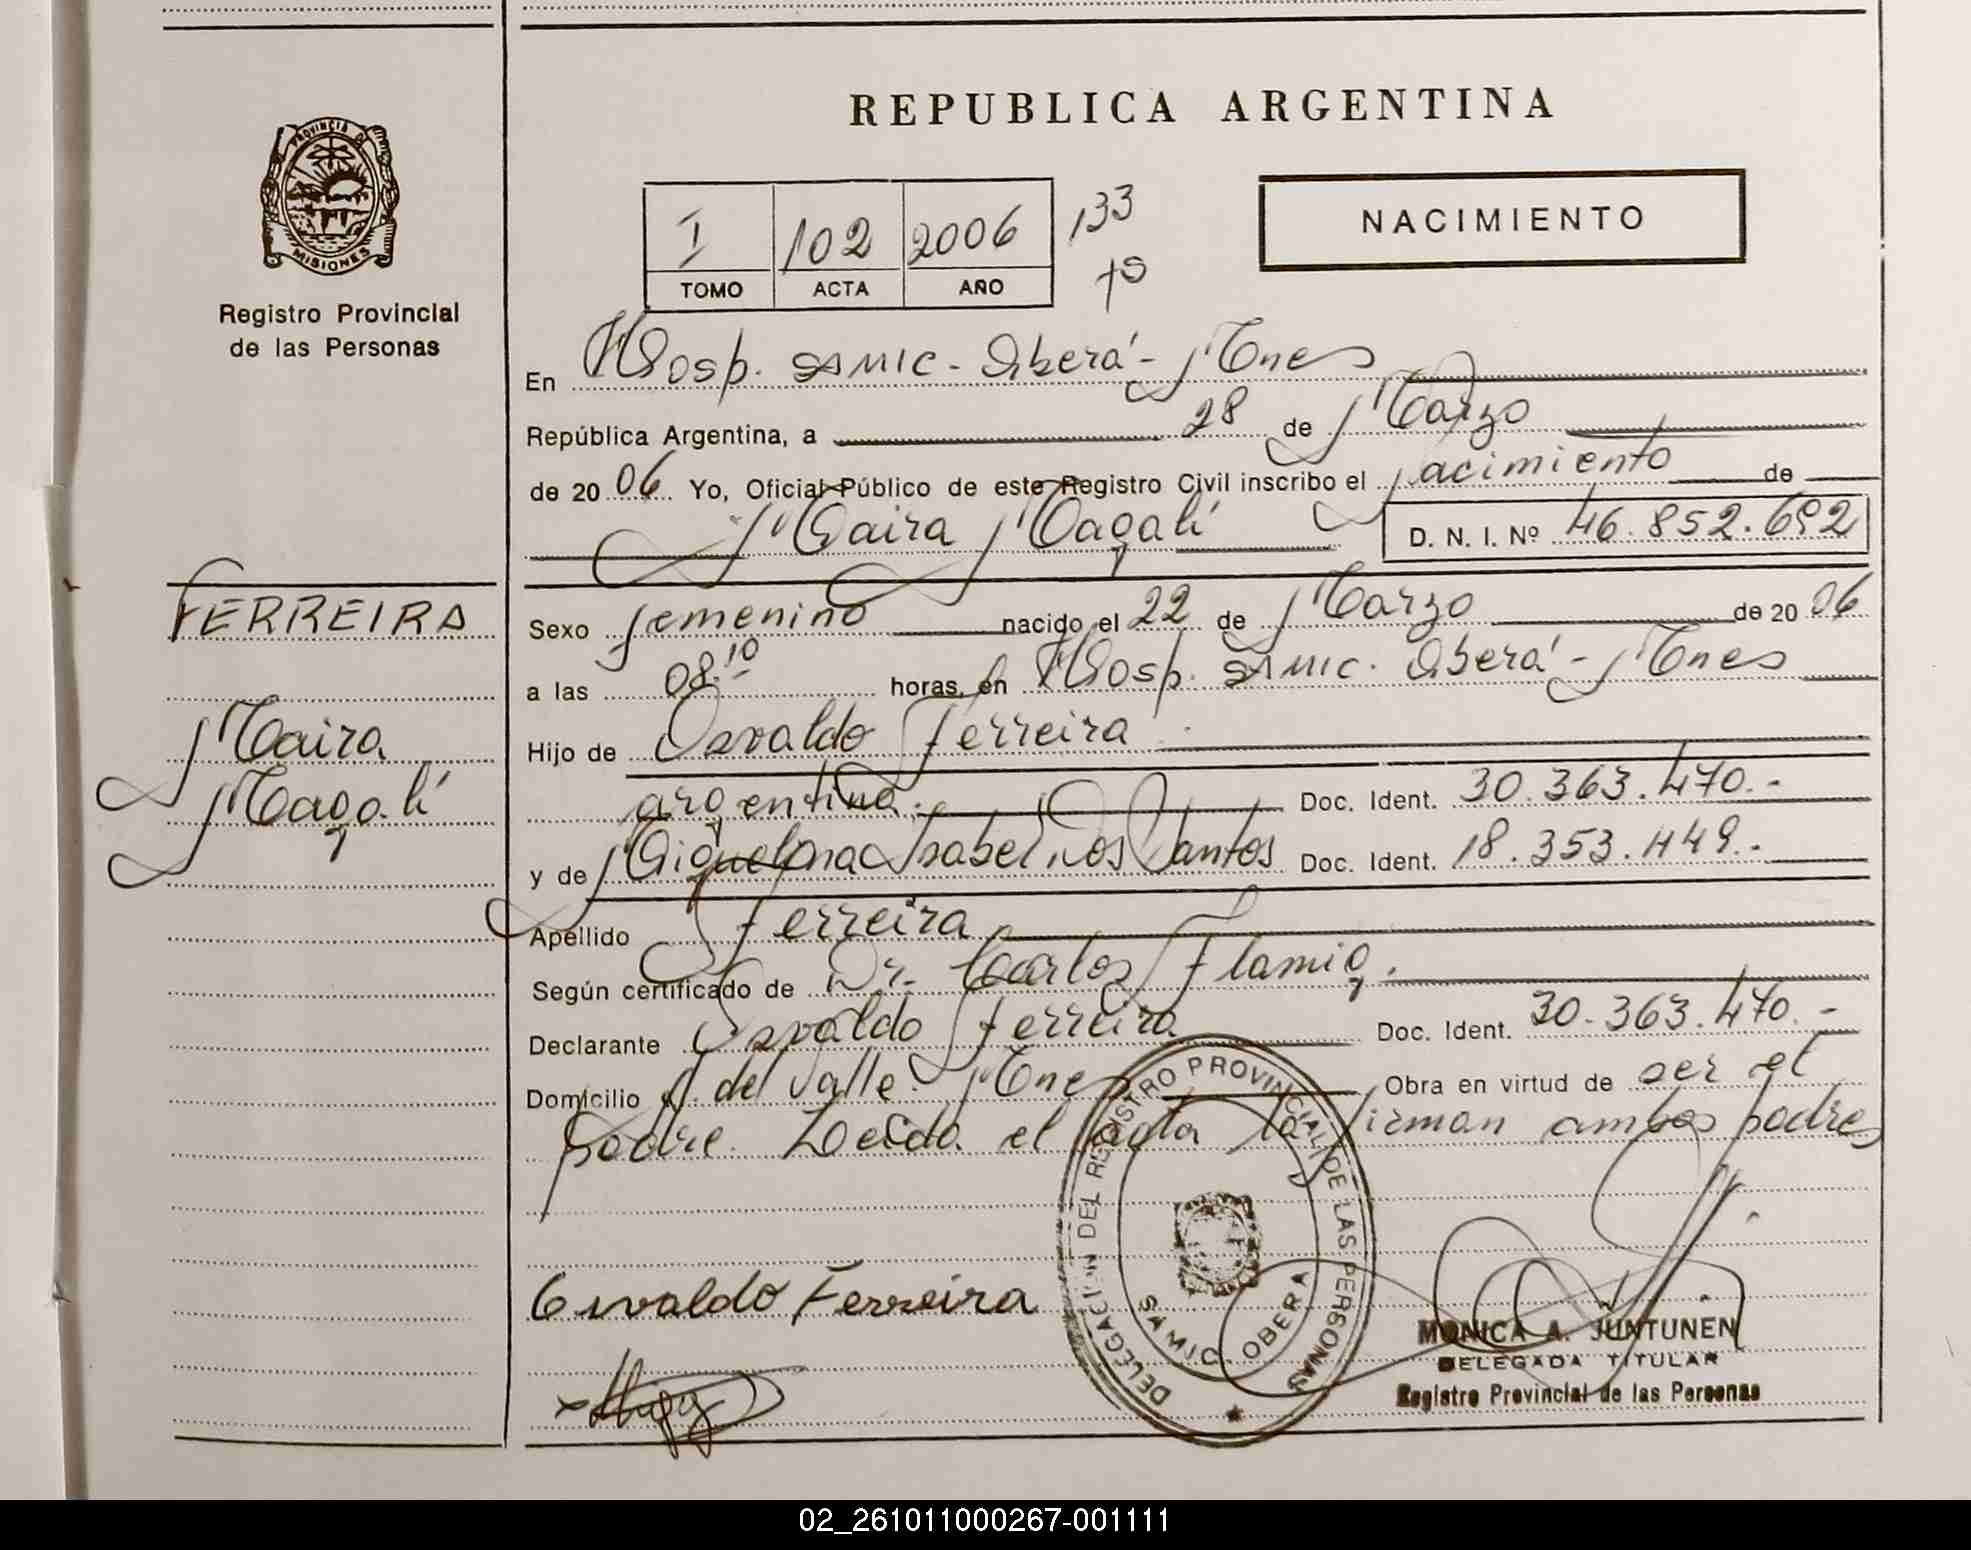 PROVINCIA DE
MISIONES
Registro Provincial
de las Personas
FERREIRA
Maira
Magalí
REPUBLICA ARGENTINA
I 102 2006 133
TOMO ACTA AÑO
NACIMIENTO
En Hosp. SAMIC - Oberá - Mnes
República Argentina, a 28 de Marzo
de 20 06 Yo, Oficial Público de este Registro Civil inscribo el nacimiento de
Maira Magalí D. N. I. Nº 46.852.692
Sexo femenino nacido el 22 de Marzo de 20 06
a las 08.10 horas, en Hosp. SAMIC. Oberá - Mnes
Hijo de Osvaldo Ferreira
argentina. Doc. Ident. 30.363.470.-
y de Miguelina Isabel Dos Santos Doc. Ident. 18.353.449.-
Apellido Ferreira
Según certificado de Dr. Carlos Flamig.
Declarante Osvaldo Ferreira Doc. Ident. 30.363.470.-
Domicilio A. del Valle. Mnes Obra en virtud de ser el
padre. Leída el acta la firman ambos padres
Osvaldo Ferreira
DELEGACION DEL REGISTRO PROVINCIAL DE LAS PERSONAS
SAMIC OBERA
MONICA A. JUNTUNEN
DELEGADA TITULAR
Registro Provincial de las Personas
02_261011000267-001111